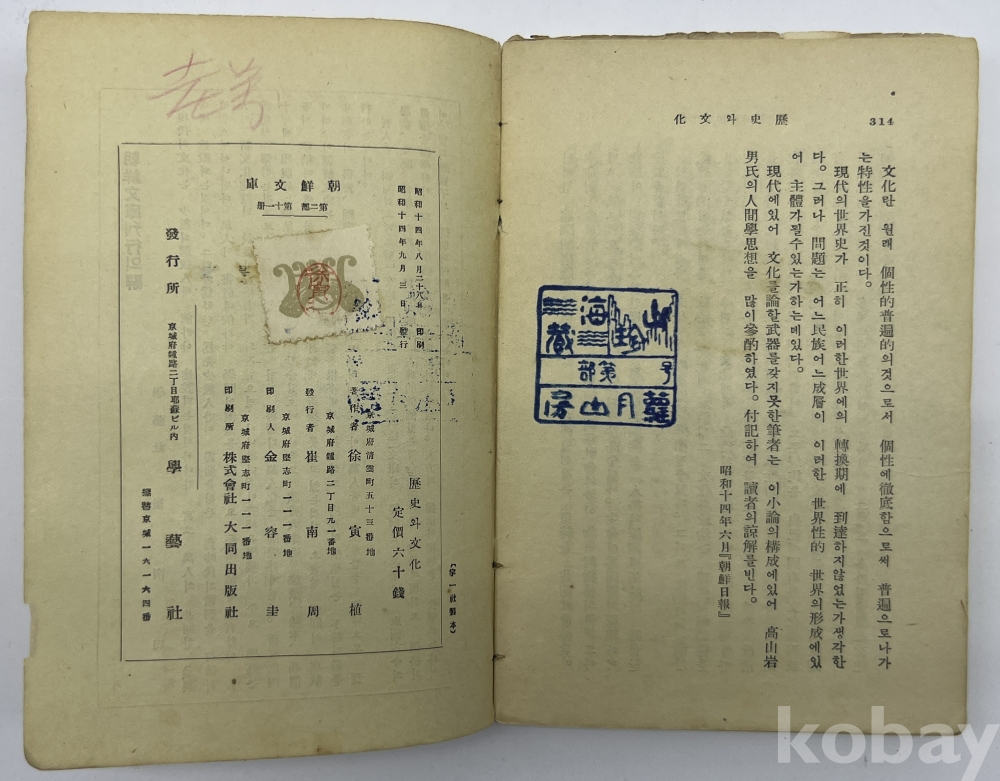 314
歷史와文化
文化란 원래 個性的普遍的의것으로서 個性에徹底함으로써 普遍으로나가
는特性을가진것이다。
現代의世界史가 正히 이러한世界에의 轉換期에 到達하지않었는가생각한
다。그러나 問題는 어느民族어느成層이 이러한 世界性的 世界의形成에있
어 主體가될수있는가하는데있다。
現代에있어 文化를論할武器를갖지못한筆者는 이小論의構成에있어 高山岩
男氏의人間學思想을 많이參酌하였다。付記하여 讀者의諒解를빈다。
昭和十四年六月『朝鮮日報』
號
第
部
朝鮮文庫
第二部 第十一册
昭和十四年八月二十八日 印刷
昭和十四年九月三日 發行
歷史와文化
定價六十錢
京城府淸雲町五十三番地
著作者 徐寅植
京城府鍾路二丁目九一番地
發行者 崔南周
京城府堅志町一一一番地
印刷人 金容圭
京城府堅志町一一一番地
印刷所 株式會社大同出版社
發行所
京城府鍾路二丁目耶蘇ビル內
學藝社
振替京城一六一六四番
kobay